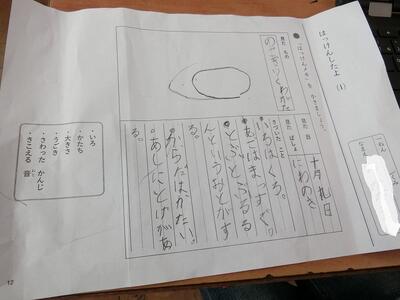 はっけんしたよ (1)
ねん
くみ
なまえ
「はっけんメモ」を かきましょう。
見た もの
のこぎりくわがた
見た 日
十月 九日
見た ばしょ
にわのき
きづいた こと
いろはくろ。
あごはまっすぐ。
とぶとぶるる
んというおとがす
る。
からだはかたい。
あしにとげがあ
る。
・いろ
・かたち
・大きさ
・うごき
・さわった かんじ
・きこえる 音
12